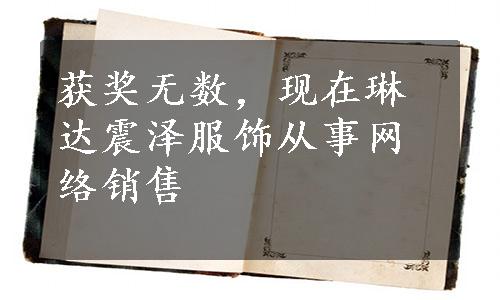 获奖无数，现在琳
达震泽服饰从事网
络销售